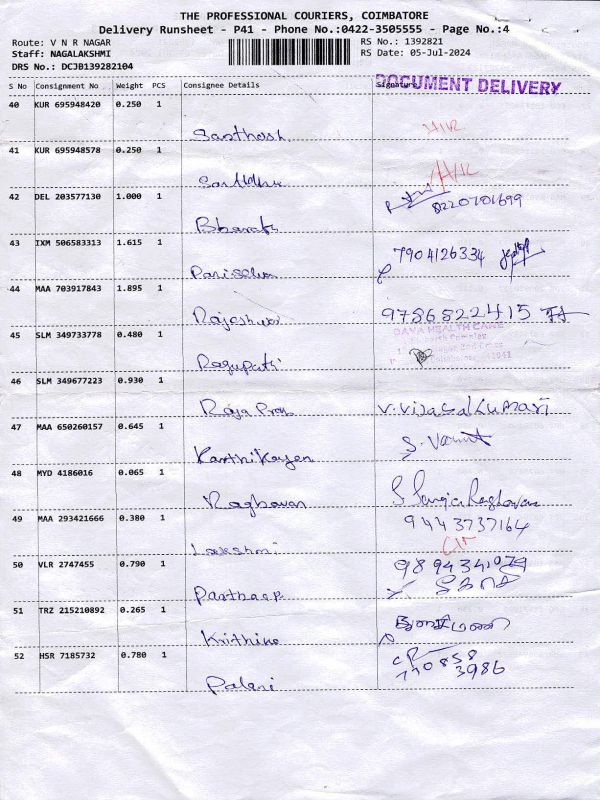 THE PROFESSIONAL COURIERS, COIMBATORE
Delivery Runsheet - P41 - Phone No.:0422-3505555 - Page No.:4
Route: V N R NAGAR
RS No.: 1392821
Staff: NAGALAKSHMI
RS Date: 05-Jul-2024
DRS No.: DCJB139282104
DOCUMENT DELIVERY
S No Consignment No Weight PCS Consignee Details Signature
40 KUR 695948420 0.250 1
Santhosh
41 KUR 695948578 0.250 1
42 DEL 203577130 1.000 1
Bharath
43 IXM 506583313 1.615 1
7904126334
44 MAA 703917843 1.895 1
Rajeshwari 9786822415
45 SLM 349733778 0.480 1
Ragupathi
46 SLM 349677223 0.930 1
V. Vijayalkumari
47 MAA 650260157 0.645 1
Karthikayen
48 MYD 4186016 0.065 1
Raghavan
49 MAA 293421666 0.380 1
9443737164
Lakshmi
50 VLR 2747455 0.790 1
51 TRZ 215210892 0.265 1
52 HSR 7185732 0.780 1
770858
3986
Palani